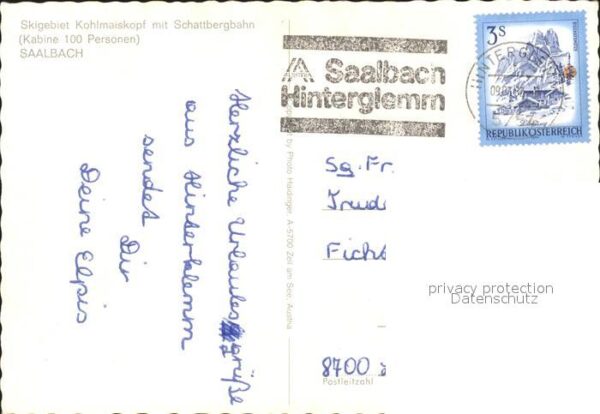 Skigebiet Kohlmaiskopf mit Schattbergbahn
(Kabine 100 Personen)
SAALBACH
Saalbach
Hinterglemm
3S
REPUBLIK ÖSTERREICH
Herzliche Urlaubsgrüße
aus Hinterklemm
sendet
Dir
Deine Elpis
by Photo Haidinger, A-5700 Zell am See, Austria
Sg. Fr.
Trud
Ficht
8700
Postleitzahl
privacy protection
Datenschutz